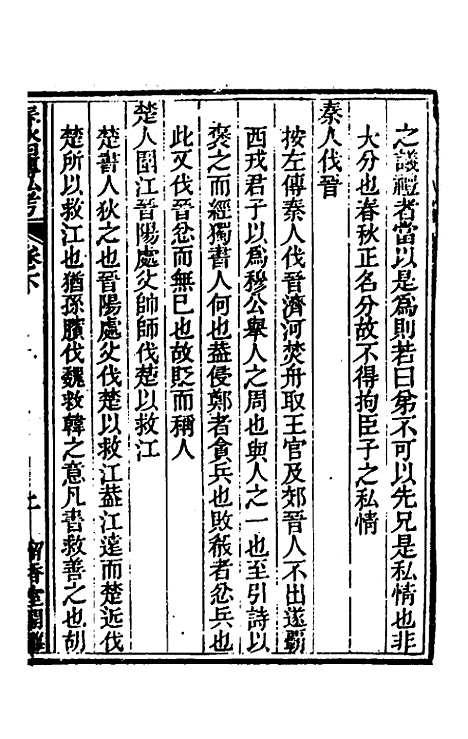 之議禮者當以是爲則若曰弟不可以先兄是私情也非
大分也春秋正名分故不得拘臣子之私情
秦人伐晉
按左傳秦人伐晉濟河焚舟取王官及郊晉人不出遂霸
西戎君子以爲穆公舉人之周也與人之一也至引詩以
褒之而經獨書人何也葢侵鄭者貪兵也敗殽者忿兵也
此又伐晉忿而無已也故貶而稱人
楚人圍江晉陽處父帥師伐楚以救江
楚書人狄之也晉陽處父伐楚以救江葢江遠而楚近伐
楚所以救江也猶孫臏伐魏救韓之意凡書救善之也胡
卷下